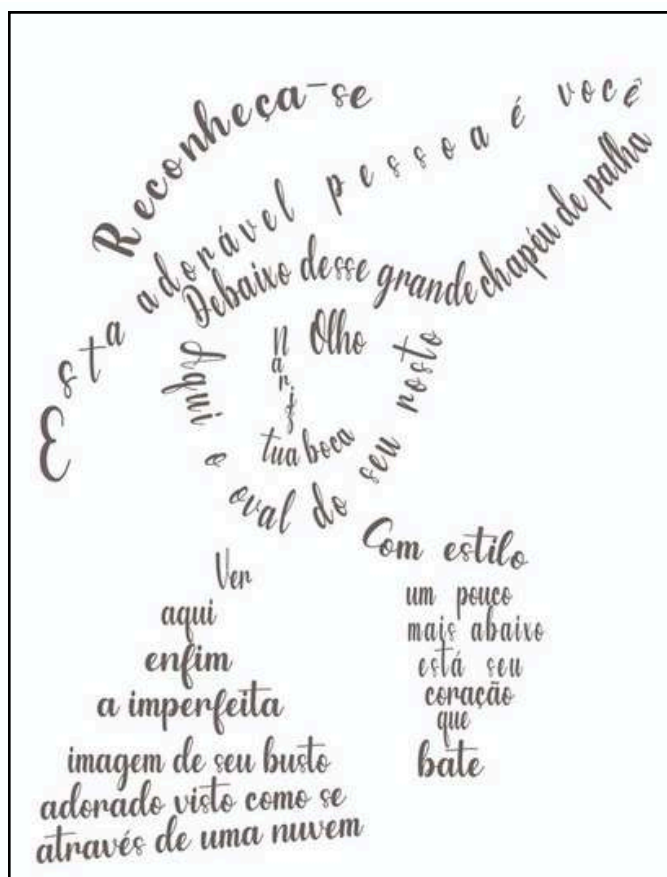 Reconheça-se
Esta adorável pessoa é você
Debaixo desse grande chapéu de palha
Olho
nariz
tua boca
Aqui o oval do seu rosto
Com estilo
um pouco
mais abaixo
está seu
coração
que
bate
Ver
aqui
enfim
a imperfeita
imagem de seu busto
adorado visto como se
através de uma nuvem